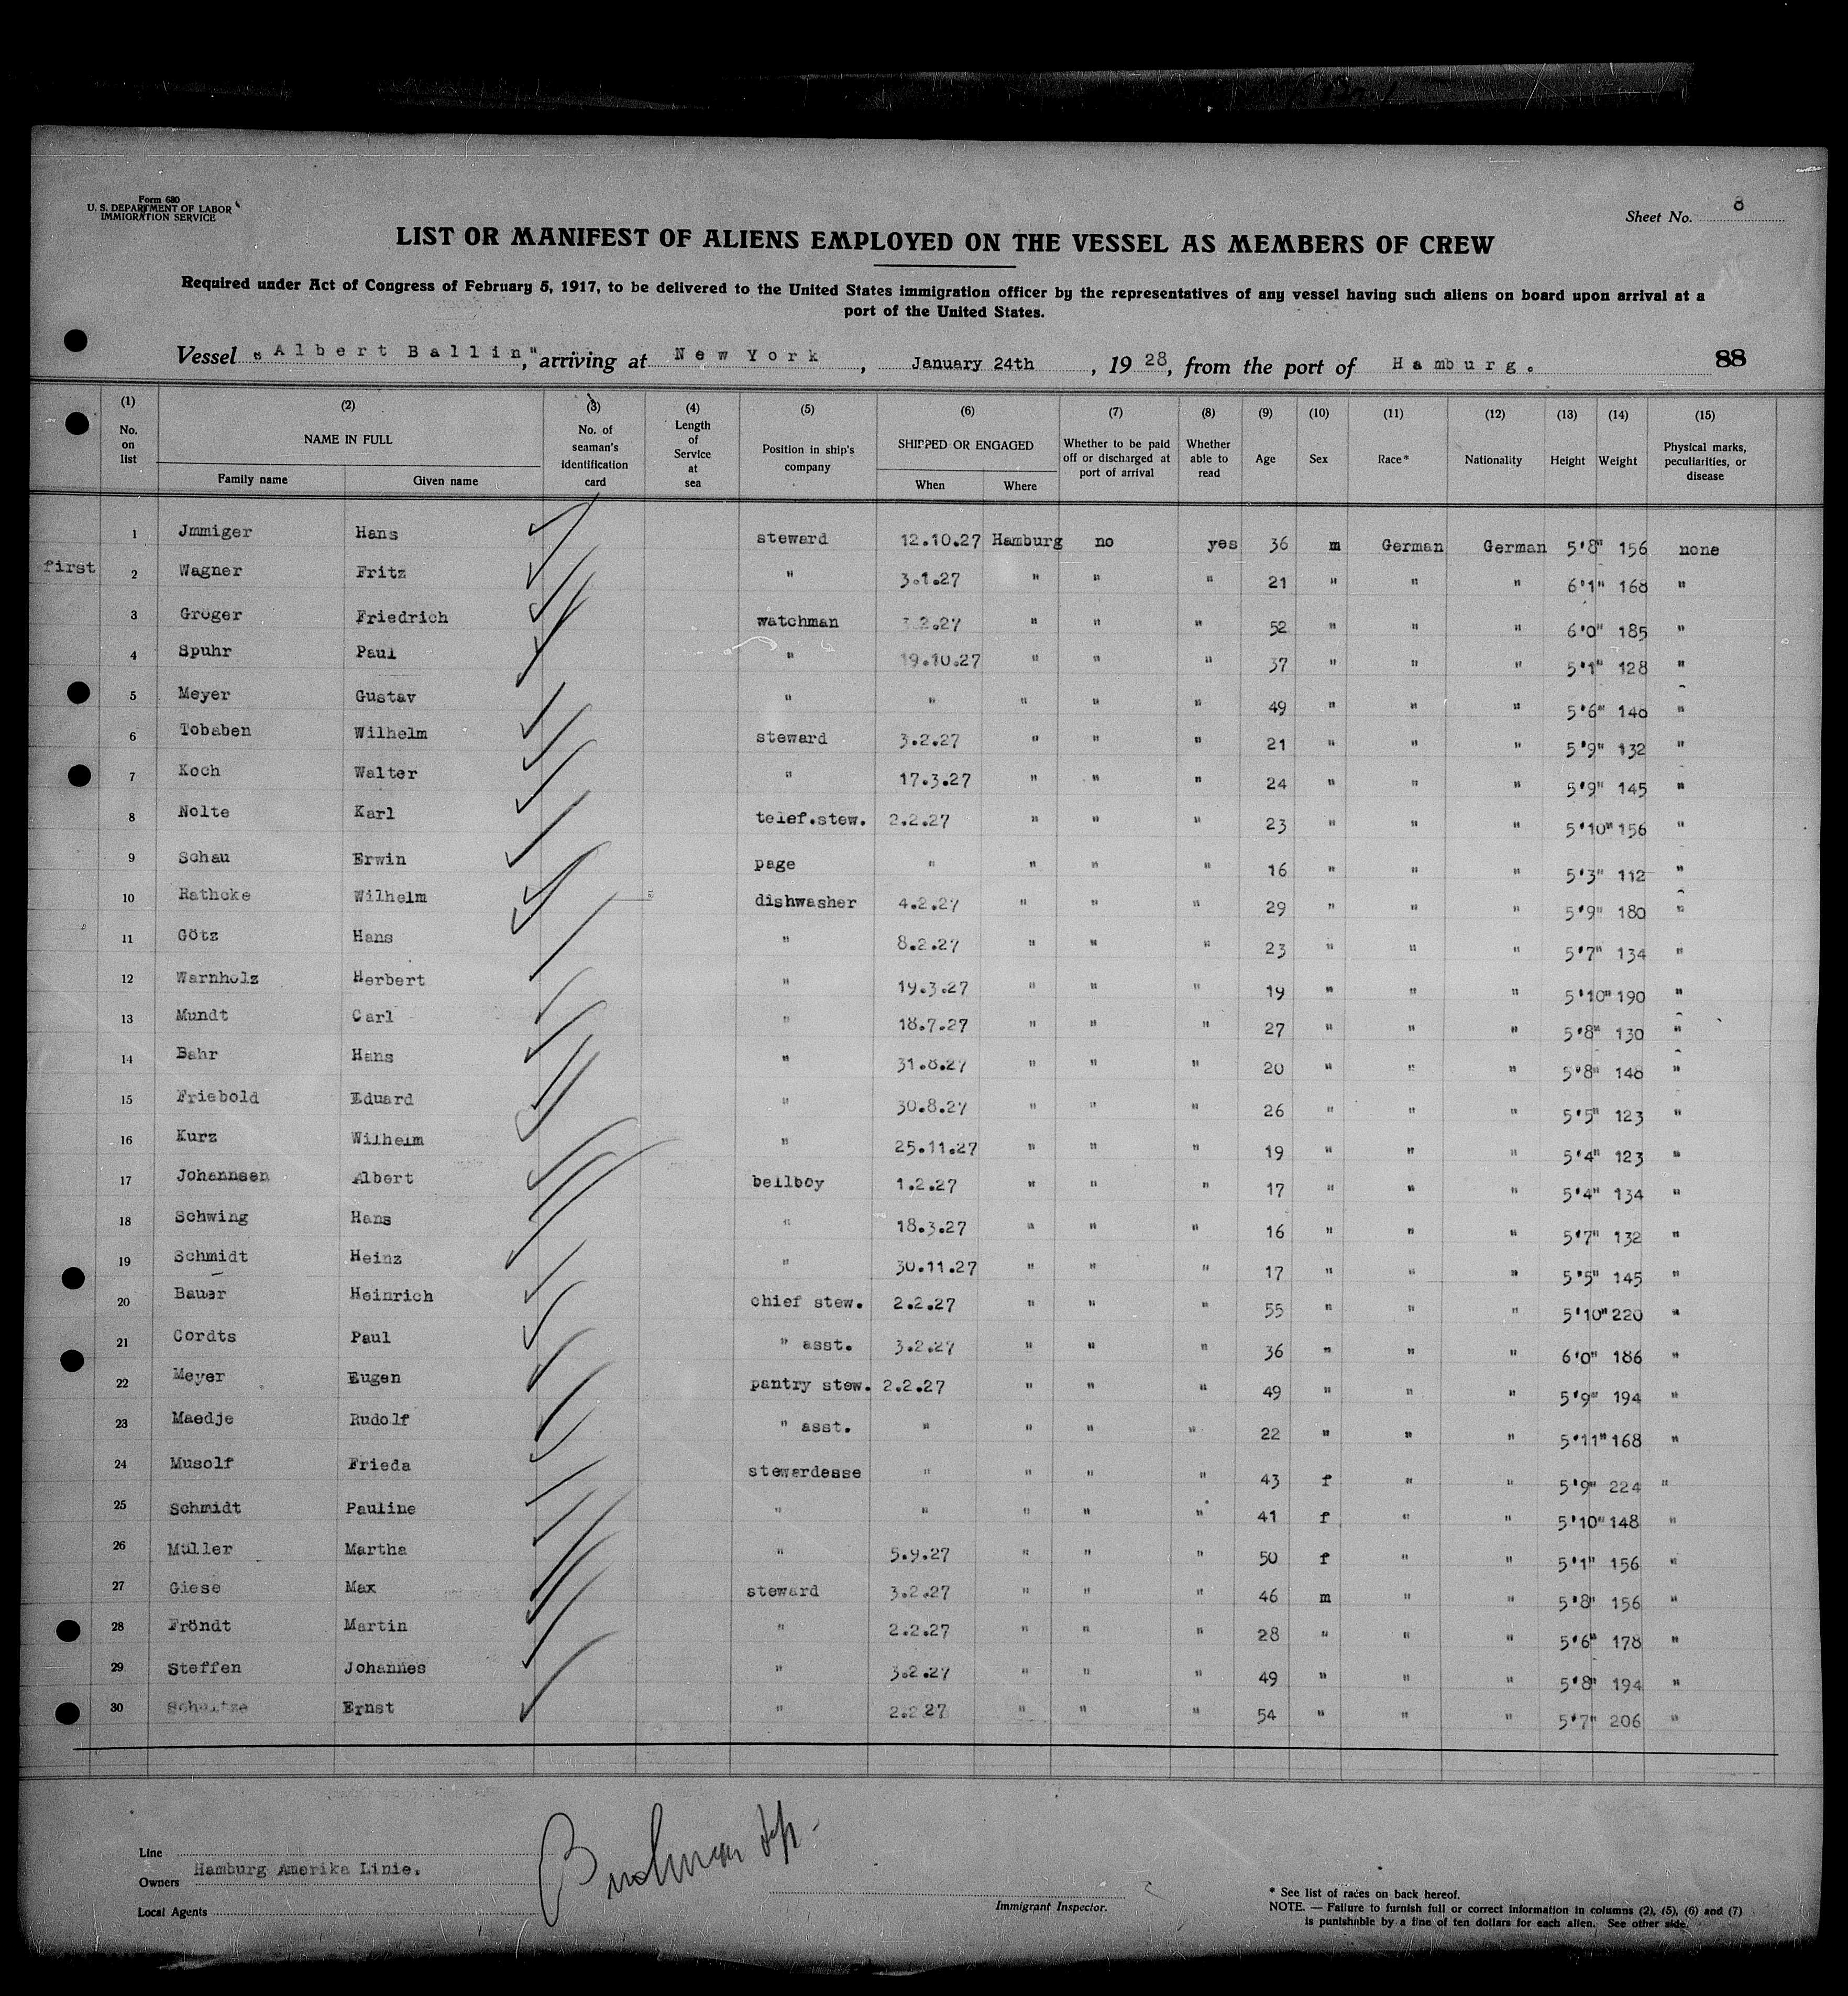 Form 680
U. S. DEPARTMENT OF LABOR
IMMIGRATION SERVICE
Sheet No. 8
LIST OR MANIFEST OF ALIENS EMPLOYED ON THE VESSEL AS MEMBERS OF CREW
Required under Act of Congress of February 5, 1917, to be delivered to the United States immigration officer by the representatives of any vessel having such aliens on board upon arrival at a
port of the United States.
Vessel "Albert Ballin", arriving at New York, January 24th, 1928, from the port of Hamburg. 88
(1) (2) (3) (4) (5) (6) (7) (8) (9) (10) (11) (12) (13) (14) (15)
No. on list NAME IN FULL Family name Given name No. of seaman's identification card Length of Service at sea Position in ship's company SHIPPED OR ENGAGED When Where Whether to be paid off or discharged at port of arrival Whether able to read Age Sex Race* Nationality Height Weight Physical marks, peculiarities, or disease
1 Jmmiger Hans steward 12.10.27 Hamburg no yes 36 m German German 5'8" 156 none
first
2 Wagner Fritz " 3.1.27 " " " 21 " " " 6'1" 168 "
3 Gröger Friedrich watchman 3.2.27 " " " 52 " " " 6'0" 185 "
4 Spuhr Paul " 19.10.27 " " " 37 " " " 5'1" 128 "
5 Meyer Gustav " " " " " 49 " " " 5'6" 140 "
6 Tobaben Wilhelm steward 3.2.27 " " " 21 " " " 5'9" 132 "
7 Koch Walter " 17.3.27 " " " 24 " " " 5'9" 145 "
8 Nolte Karl telef.stew. 2.2.27 " " " 23 " " " 5'10" 156 "
9 Schau Erwin page " " " " 16 " " " 5'3" 112 "
10 Rathcke Wilhelm dishwasher 4.2.27 " " " 29 " " " 5'9" 180 "
11 Götz Hans " 8.2.27 " " " 23 " " " 5'7" 134 "
12 Warnholz Herbert " 19.3.27 " " " 19 " " " 5'10" 190 "
13 Mundt Carl " 18.7.27 " " " 27 " " " 5'8" 130 "
14 Bahr Hans " 31.8.27 " " " 20 " " " 5'8" 148 "
15 Friebold Eduard " 30.8.27 " " " 26 " " " 5'5" 123 "
16 Kurz Wilhelm " 25.11.27 " " " 19 " " " 5'4" 123 "
17 Johannsen Albert bellboy 1.2.27 " " " 17 " " " 5'4" 134 "
18 Schwing Hans " 18.3.27 " " " 16 " " " 5'7" 132 "
19 Schmidt Heinz " 30.11.27 " " " 17 " " " 5'5" 145 "
20 Bauer Heinrich chief stew. 2.2.27 " " " 55 " " " 5'10" 220 "
21 Cordts Paul " asst. 3.2.27 " " " 36 " " " 6'0" 186 "
22 Meyer Eugen pantry stew. 2.2.27 " " " 49 " " " 5'9" 194 "
23 Maedje Rudolf " asst. " " " " 22 " " " 5'11" 168 "
24 Musolf Frieda stewardesse " " " " 43 f " " 5'9" 224 "
25 Schmidt Pauline " " " " " 41 f " " 5'10" 148 "
26 Müller Martha " 5.9.27 " " " 50 f " " 5'1" 156 "
27 Giese Max steward 3.2.27 " " " 46 m " " 5'8" 156 "
28 Fröndt Martin " 2.2.27 " " " 28 " " " 5'6" 178 "
29 Steffen Johannes " 3.2.27 " " " 49 " " " 5'8" 194 "
30 Schultze Ernst " 2.2.27 " " " 54 " " " 5'7" 206 "
Line
Hamburg Amerika Linie.
Owners
Local Agents
Immigrant Inspector.
* See list of races on back hereof.
NOTE. — Failure to furnish full or correct information in columns (2), (5), (6) and (7)
is punishable by a fine of ten dollars for each alien. See other side.